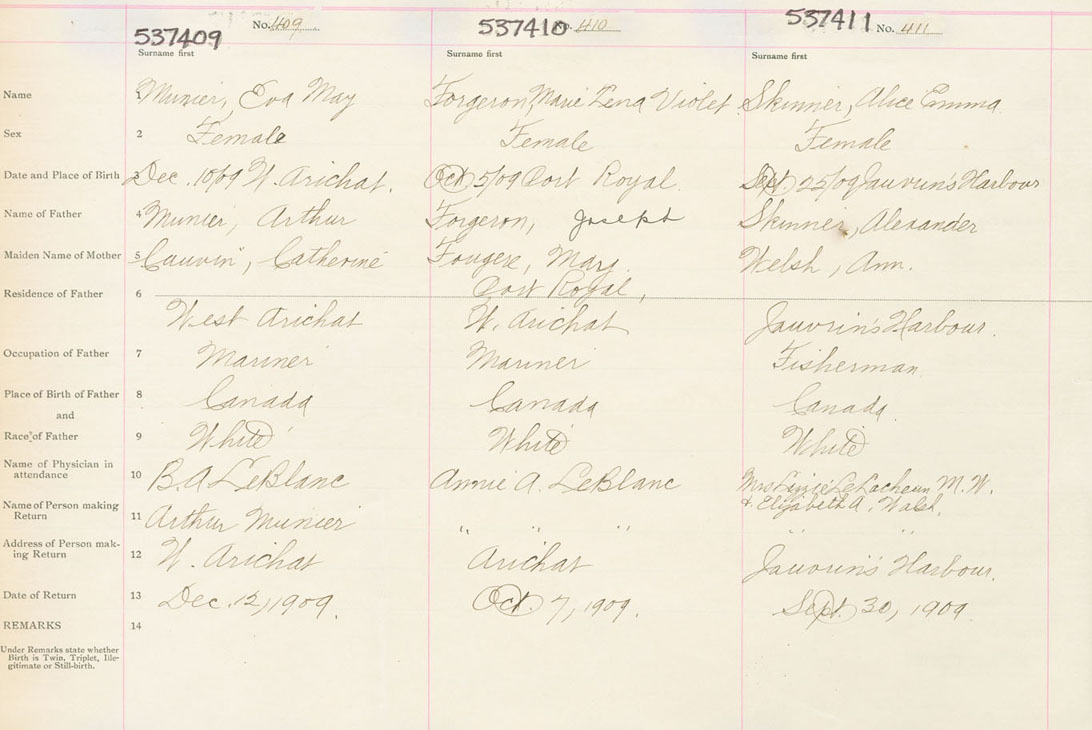 537409 No. 409 537410 No. 410 537411 No. 411
Surname first Surname first Surname first
Name 1 Munier, Eva May Forgeron, Marie Lena Violet Skinner, Alice Emma
Sex 2 Female Female Female
Date and Place of Birth 3 Dec. 10/09 W. Arichat. Oct 5/09 Port Royal. Sept 25/09 Jauvrin's Harbour
Name of Father 4 Munier, Arthur Forgeron, Joseph Skinner, Alexander
Maiden Name of Mother 5 Cauvin", Catherine Fougere, Mary. Welsh, Ann.
Residence of Father 6 Port Royal,
West Arichat W. Arichat Jauvrin's Harbour.
Occupation of Father 7 Mariner Mariner Fisherman
Place of Birth of Father 8 Canada Canada Canada.
and
Race of Father 9 White White White
Name of Physician in
attendance 10 B. A LeBlanc Annie A. LeBlanc Mrs Lizzie LeLacheur M. W.
& Elizabeth A. Walsh.
Name of Person making
Return 11 Arthur Munier " " " " "
Address of Person mak-
ing Return 12 W. Arichat Arichat Jauvrin's Harbour.
Date of Return 13 Dec. 12, 1909. Oct. 7, 1909. Sept. 30, 1909.
REMARKS 14
Under Remarks state whether
Birth is Twin, Triplet, Ille-
gitimate or Still-birth.